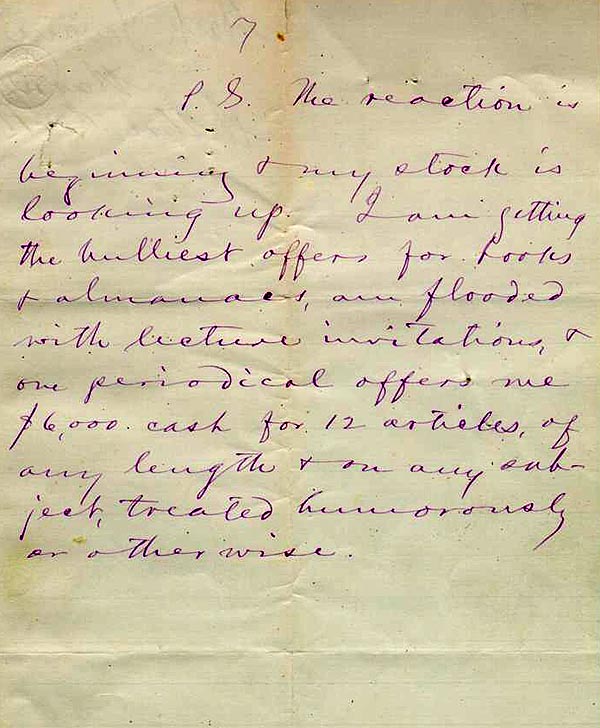 7
P. S. The reaction is
beginning & my stock is
looking up. I am getting
the bulliest offers for books
& almanacs, am flooded
with lecture invitations, &
one periodical offers me
$6,000 cash for 12 articles, of
any length & on any sub-
ject, treated humorously
or otherwise.